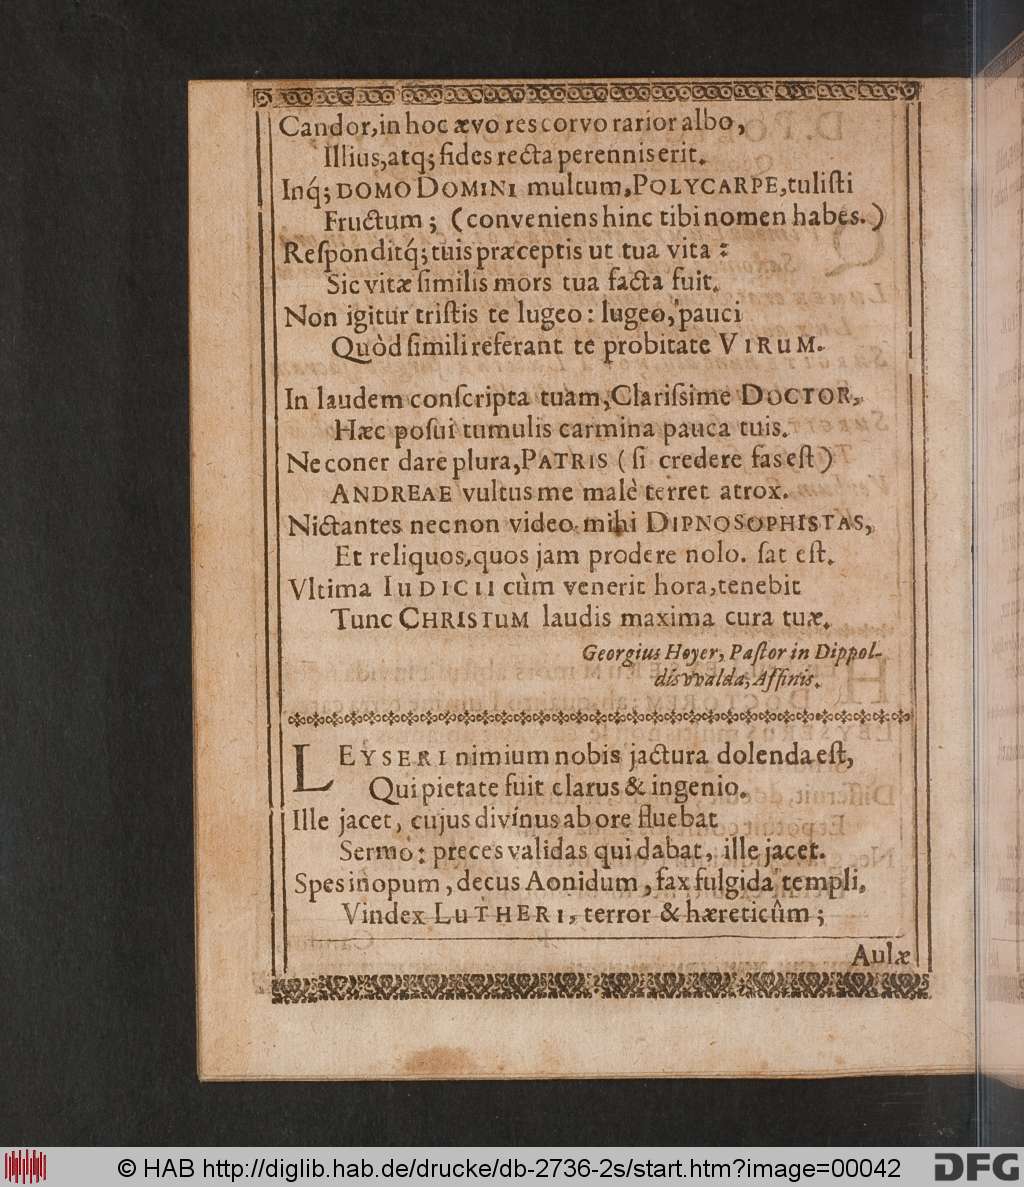 Candor, in hoc ævo res corvo rarior albo,
Illius, atq; fides recta perennis erit.
Inq́; DOMO DOMINI multum, POLYCARPE, tuliſti
Fructum; (conveniens hinc tibi nomen habes.)
Reſponditq́; tuis præceptis ut tua vita:
Sic vitæ ſimilis mors tua facta fuit.
Non igitur triſtis te lugeo: lugeo, pauci
Quòd ſimili referant te probitate VIRUM.
In laudem conſcripta tuam, Clariſsime DOCTOR,
Hæc poſui tumulis carmina pauca tuis.
Ne coner dare plura, PATRIS (ſi credere fas eſt)
ANDREAE vultus me malè terret atrox.
Nictantes necnon video mihi DIPNOSOPHISTAS,
Et reliquos, quos jam prodere nolo. ſat eſt.
Vltima IUDICII cùm venerit hora, tenebit
Tunc CHRISTUM laudis maxima cura tuæ.
Georgius Hoyer, Paſtor in Dippol-
disvvalda, Affinis.
LEYSERI nimium nobis jactura dolenda eſt,
Qui pietate fuit clarus & ingenio.
Ille jacet, cujus divínus ab ore fluebat
Sermo: preces validas qui dabat, ille jacet.
Spes inopum, decus Aonidum, fax fulgida templi,
Vindex LUTHERI, terror & hæreticûm;
Aulæ
© HAB http://diglib.hab.de/drucke/db-2736-2s/start.htm?image=00042
DFG